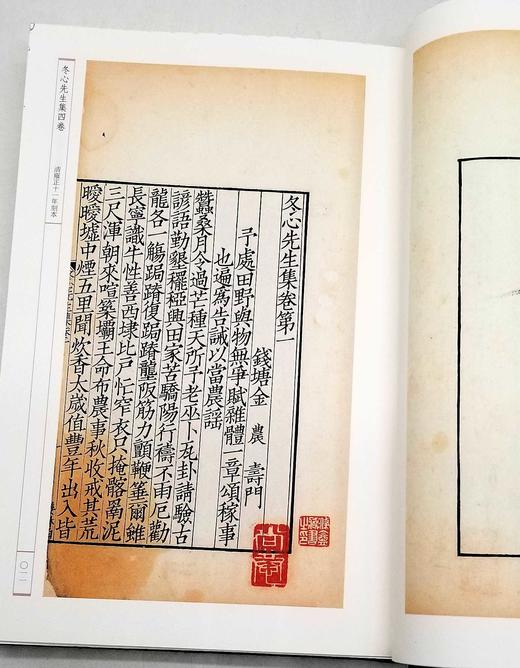 冬心先生集四卷
清雍正十一年刻本
冬心先生集卷第一
錢塘金 農 壽門
予處田野與物無爭賦雜體一章頌稼事
也遍為告誡以當農謡
蠶桑月令過芒種天所予老巫卜瓦卦請驗古
諺語勤懇䆉稏興田家苦驕陽行禱不雨厄勸
龍各一觴跼蹐復跼蹐壟阪筋力顫鞭箠爾雖
長寧識牛性善西埭比戶忙窄衣只掩髂罱泥
三尺渾朝來喧築壩王命布農事秋收戒其荒
曖曖墟中煙五里聞炊香太歲值豐年出入皆